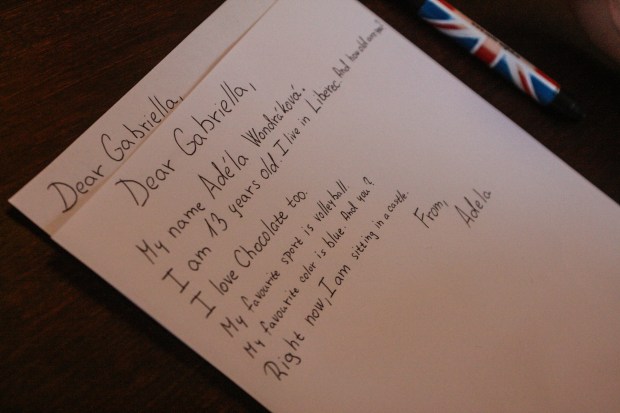 Dear Gabriella,
Dear Gabriella,
My name Adéla Wondráková.
I am 13 years old. I live in Liberec. And how old are you?
I love Chocolate too.
My favourite sport is volleyball.
My favourite color is blue. And you?
Right now, I am sitting in a castle.
From,
Adéla